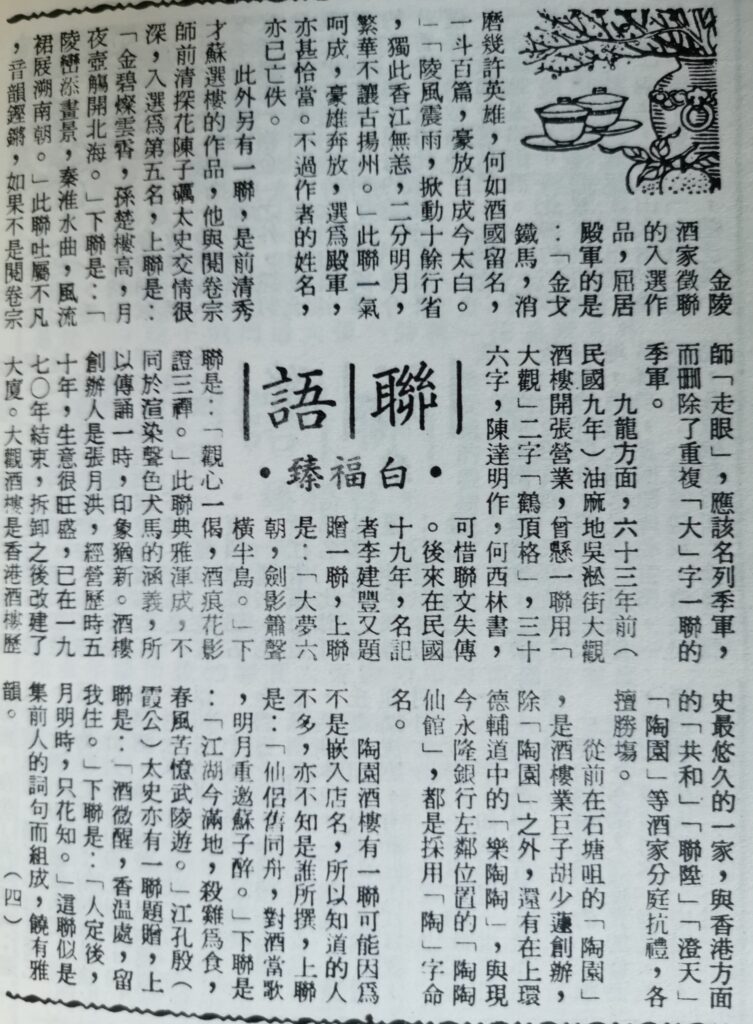 聯語
•白福臻•
金陵
酒家徵聯
的入選作
品，屈居
殿軍的是
：「金戈
鐵馬，消
磨幾許英雄，何如酒國留名，
一斗百篇，豪放自成今太白。
」「陵風震雨，掀動十餘行省
，獨此香江無恙，二分明月，
繁華不讓古揚州。」此聯一氣
呵成，豪雄奔放，選爲殿軍，
亦甚恰當。不過作者的姓名，
亦已亡佚。
此外另有一聯，是前清秀
才蘇選樓的作品，他與閱卷宗
師前清探花陳子礪太史交情很
深，入選爲第五名，上聯是：
「金碧燦雲霄，孫楚樓高，月
夜壺觴開北海。」下聯是：「
陵巒添畫景，秦淮水曲，風流
裙屐溯南朝。」此聯吐屬不凡
，音韻鏗鏘，如果不是閱卷宗
師「走眼」，應該名列季軍，
而刪除了重複「大」字一聯的
季軍。
九龍方面，六十三年前（
民國九年）油麻地吳淞街大觀
酒樓開張營業，曾懸一聯用「
大觀」二字「鶴頂格」，三十
六字，陳達明作，何西林書，
可惜聯文失傳
。後來在民國
十九年，名記
者李建豐又題
贈一聯，上聯
是：「大夢六
朝，劍影簫聲
橫半島。」下
聯是：「觀心一偈，酒痕花影
證三禪。」此聯典雅渾成，不
同於渲染聲色犬馬的涵義，所
以傳誦一時，印象猶新。酒樓
創辦人是張月洪，經營歷時五
十年，生意很旺盛，已在一九
七〇年結束，拆卸之後改建了
大廈。大觀酒樓是香港酒樓歷
史最悠久的一家，與香港方面
的「共和」「聯陞」「澄天」
「陶園」等酒家分庭抗禮，各
擅勝場。
從前在石塘咀的「陶園」
，是酒樓業巨子胡少蘧創辦，
除「陶園」之外，還有在上環
德輔道中的「樂陶陶」，與現
今永隆銀行左鄰位置的「陶陶
仙館」，都是採用「陶」字命
名。
陶園酒樓有一聯可能因爲
不是嵌入店名，所以知道的人
不多，亦不知是誰所撰，上聯
是：「仙侶舊同舟，對酒當歌
，明月重邀蘇子醉。」下聯是
：「江湖今滿地，殺雞爲食，
春風苦憶武陵遊。」江孔殷（
霞公）太史亦有一聯題贈，上
聯是：「酒微醒，香温處，留
我住。」下聯是：「人定後，
月明時，只花知。」這聯似是
集前人的詞句而組成，饒有雅
韻。（四）